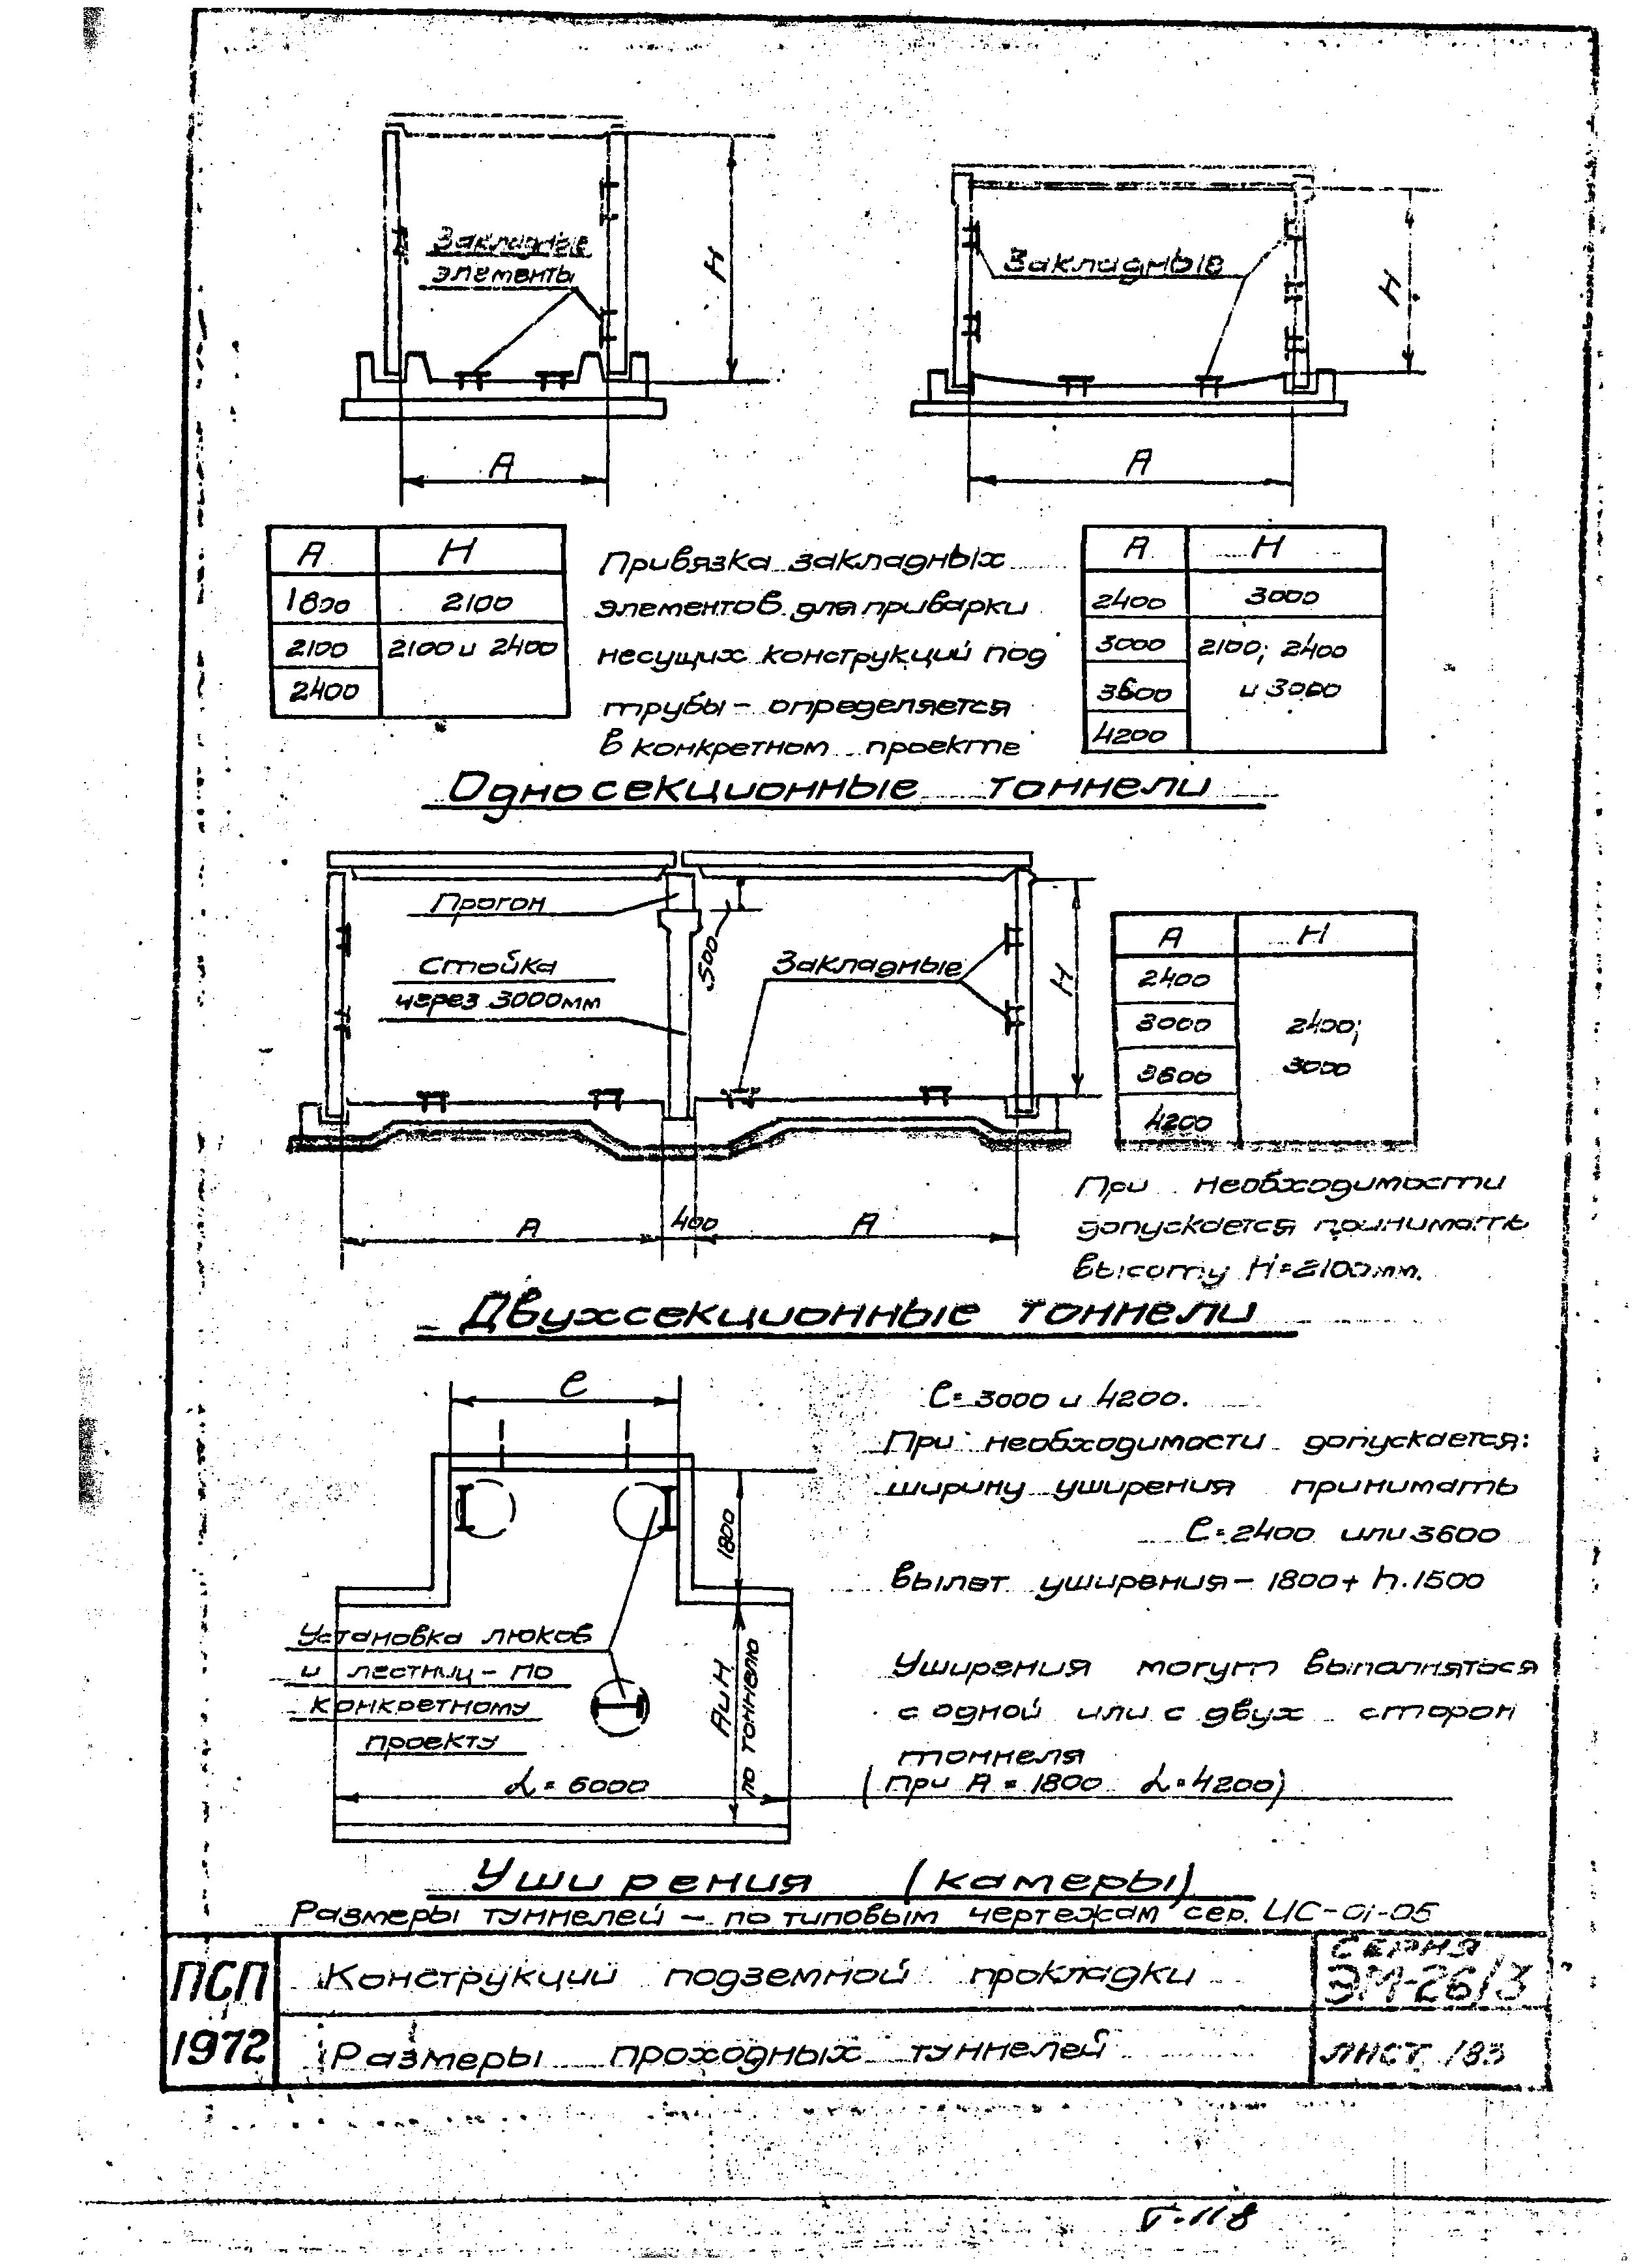 Закладные
элементы
H
A
Закладные
H
A
A H
1800 2100
2100 2100 и 2400
2400
Привязка закладных
элементов для приварки
несущих конструкций под
трубы – определяется
в конкретном проекте
A H
2400 3000
3000 2100; 2400
3600 и 3000
4200
Односекционные тоннели
Прогон
Стойка
через 3000мм
500
Закладные
H
A
400
A
A H
2400
3000 2400;
3600 3000
4200
При необходимости
допускается принимать
высоту H=2100мм.
Двухсекционные тоннели
ℓ
1800
Установка люков
и лестниц – по
конкретному
проекту
А и Н
по тоннелю
L = 6000
ℓ = 3000 и 4200.
При необходимости допускается:
ширину уширения принимать
ℓ = 2400 или 3600
вылет уширения – 1800 + n.1500
Уширения могут выполняться
с одной или с двух сторон
тоннеля
(при А = 1800 L = 4200)
Уширения (камеры)
Размеры туннелей – по типовым чертежам сер. ИС-01-05
ПСП
1972
Конструкции подземной прокладки
Размеры проходных туннелей
СЕРИЯ
ЭМ-26/3
ЛИСТ 183